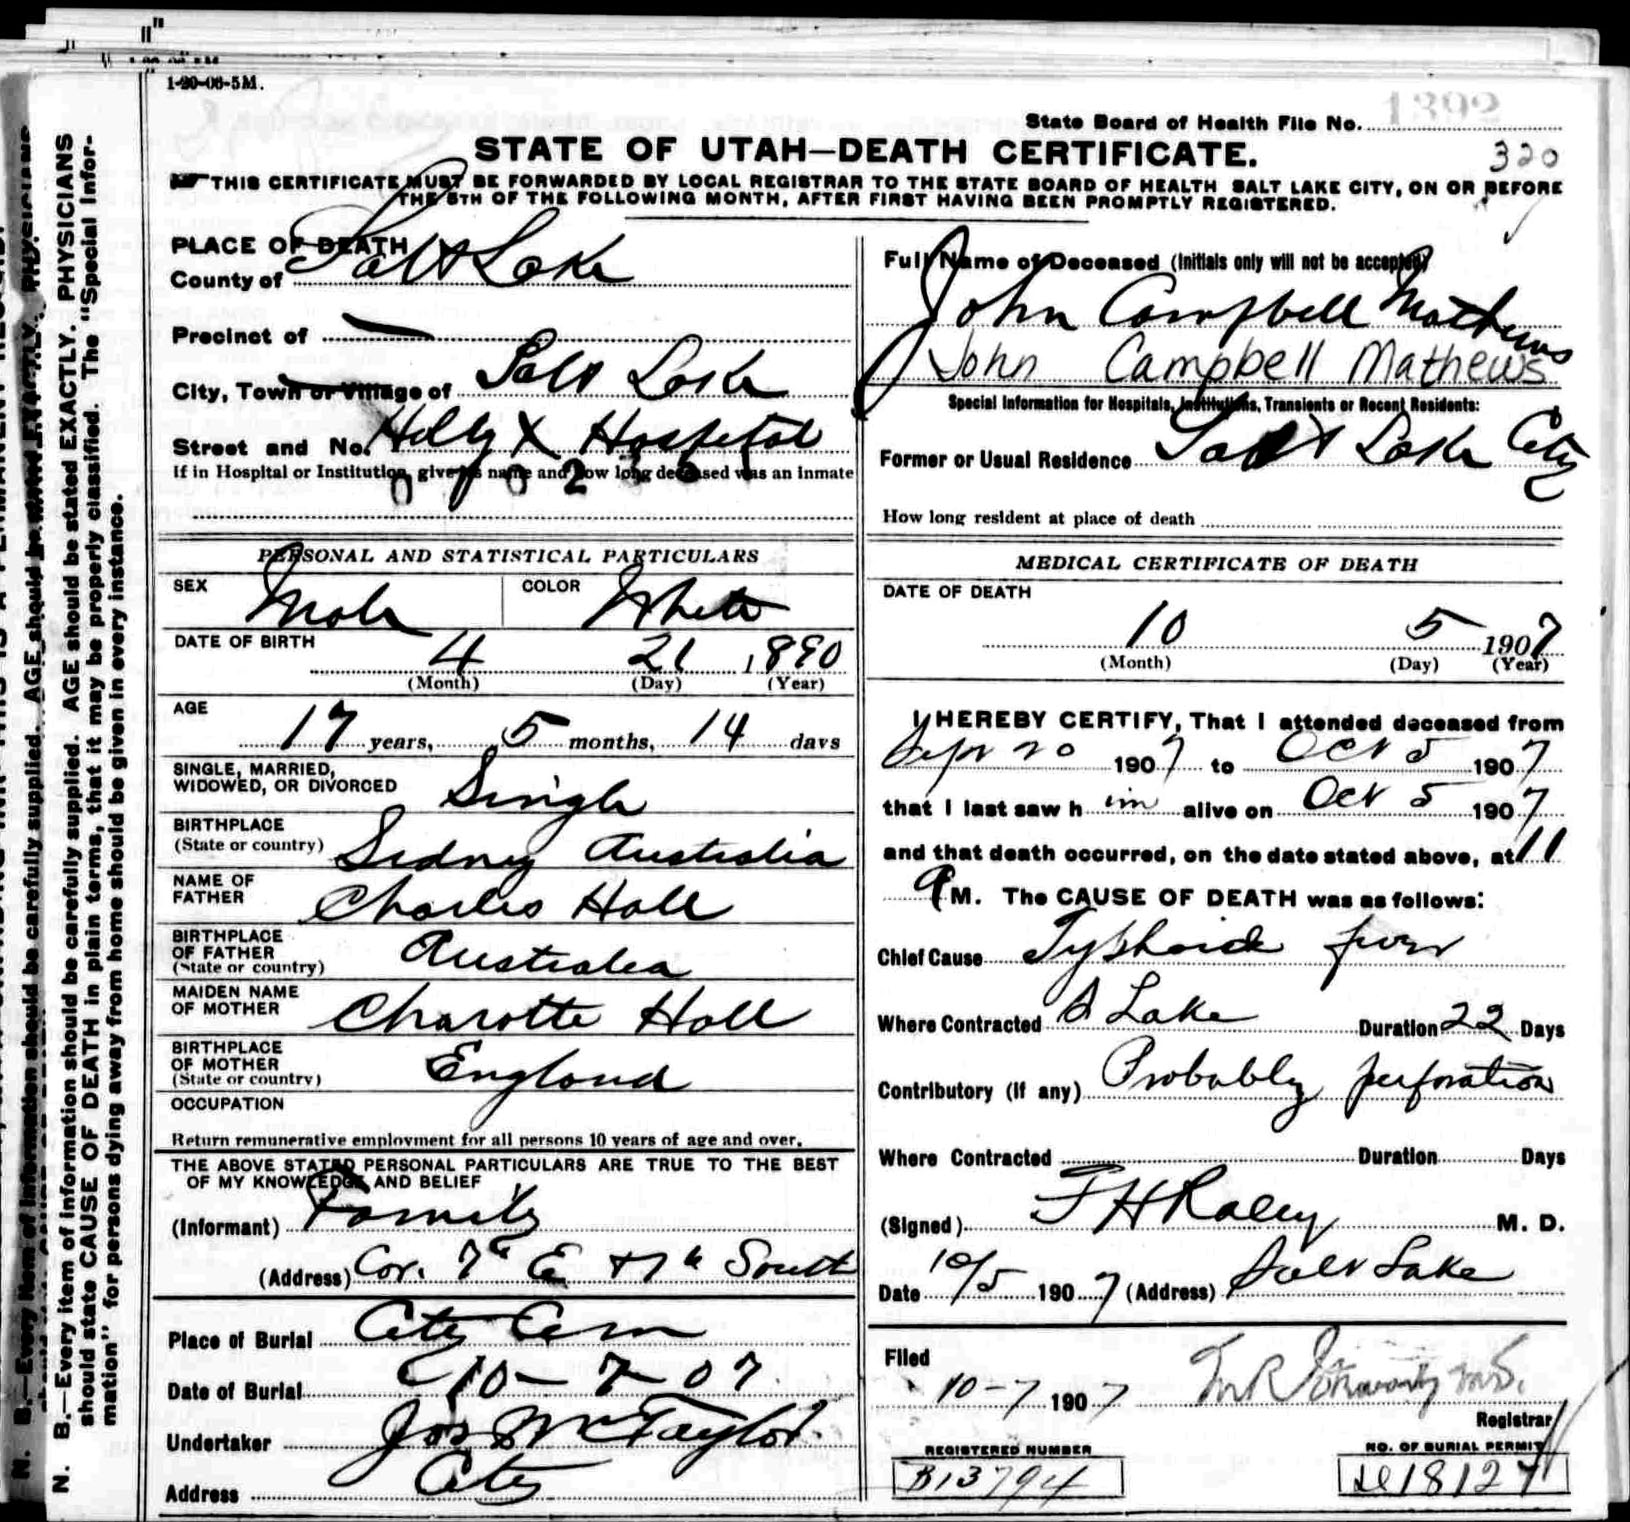 1-20-06-5M.
State Board of Health File No. 1392
STATE OF UTAH—DEATH CERTIFICATE.
320
THIS CERTIFICATE MUST BE FORWARDED BY LOCAL REGISTRAR TO THE STATE BOARD OF HEALTH SALT LAKE CITY, ON OR BEFORE
THE 5TH OF THE FOLLOWING MONTH, AFTER FIRST HAVING BEEN PROMPTLY REGISTERED.
N. B.—Every item of information should be carefully supplied. AGE should be stated EXACTLY. PHYSICIANS
should state CAUSE OF DEATH in plain terms, that it may be properly classified. The "Special Infor-
mation" for persons dying away from home should be given in every instance.
PLACE OF DEATH
County of Salt Lake
Precinct of —
City, Town or Village of Salt Lake
Street and No. Holy X Hospital
If in Hospital or Institution, give its name and how long deceased was an inmate
PERSONAL AND STATISTICAL PARTICULARS
SEX Male COLOR White
DATE OF BIRTH
4 21 1890
(Month) (Day) (Year)
AGE
17 years, 5 months, 14 days
SINGLE, MARRIED,
WIDOWED, OR DIVORCED Single
BIRTHPLACE
(State or country) Sidney Australia
NAME OF
FATHER Charles Hall
BIRTHPLACE
OF FATHER
(State or country) Australea
MAIDEN NAME
OF MOTHER Charotte Hall
BIRTHPLACE
OF MOTHER
(State or country) England
OCCUPATION
Return remunerative employment for all persons 10 years of age and over.
THE ABOVE STATED PERSONAL PARTICULARS ARE TRUE TO THE BEST
OF MY KNOWLEDGE AND BELIEF
(Informant) Family
(Address) Cor. 7th E & 7th South
Place of Burial City Cem
Date of Burial 10-7-07
Undertaker Jos Wm Taylor.
Address City
Full Name of Deceased (Initials only will not be accepted)
John Campbell Mathews
John Campbell Mathews
Special Information for Hospitals, Institutions, Transients or Recent Residents:
Former or Usual Residence Salt Lake City
How long resident at place of death
MEDICAL CERTIFICATE OF DEATH
DATE OF DEATH
10 5 1907
(Month) (Day) (Year)
I HEREBY CERTIFY, That I attended deceased from
Sept 20 1907 to Oct 5 1907
that I last saw him alive on Oct 5 1907
and that death occurred, on the date stated above, at 11
A M. The CAUSE OF DEATH was as follows:
Chief Cause Typhoid fever
Where Contracted S Lake Duration 22 Days
Contributory (if any) Probably perforation
Where Contracted Duration Days
(Signed) F H Raley M. D.
Date 10/5 1907 (Address) Salt Lake
Filed
10-7 1907
Registrar
REGISTERED NUMBER
B13794
NO. OF BURIAL PERMIT
18127